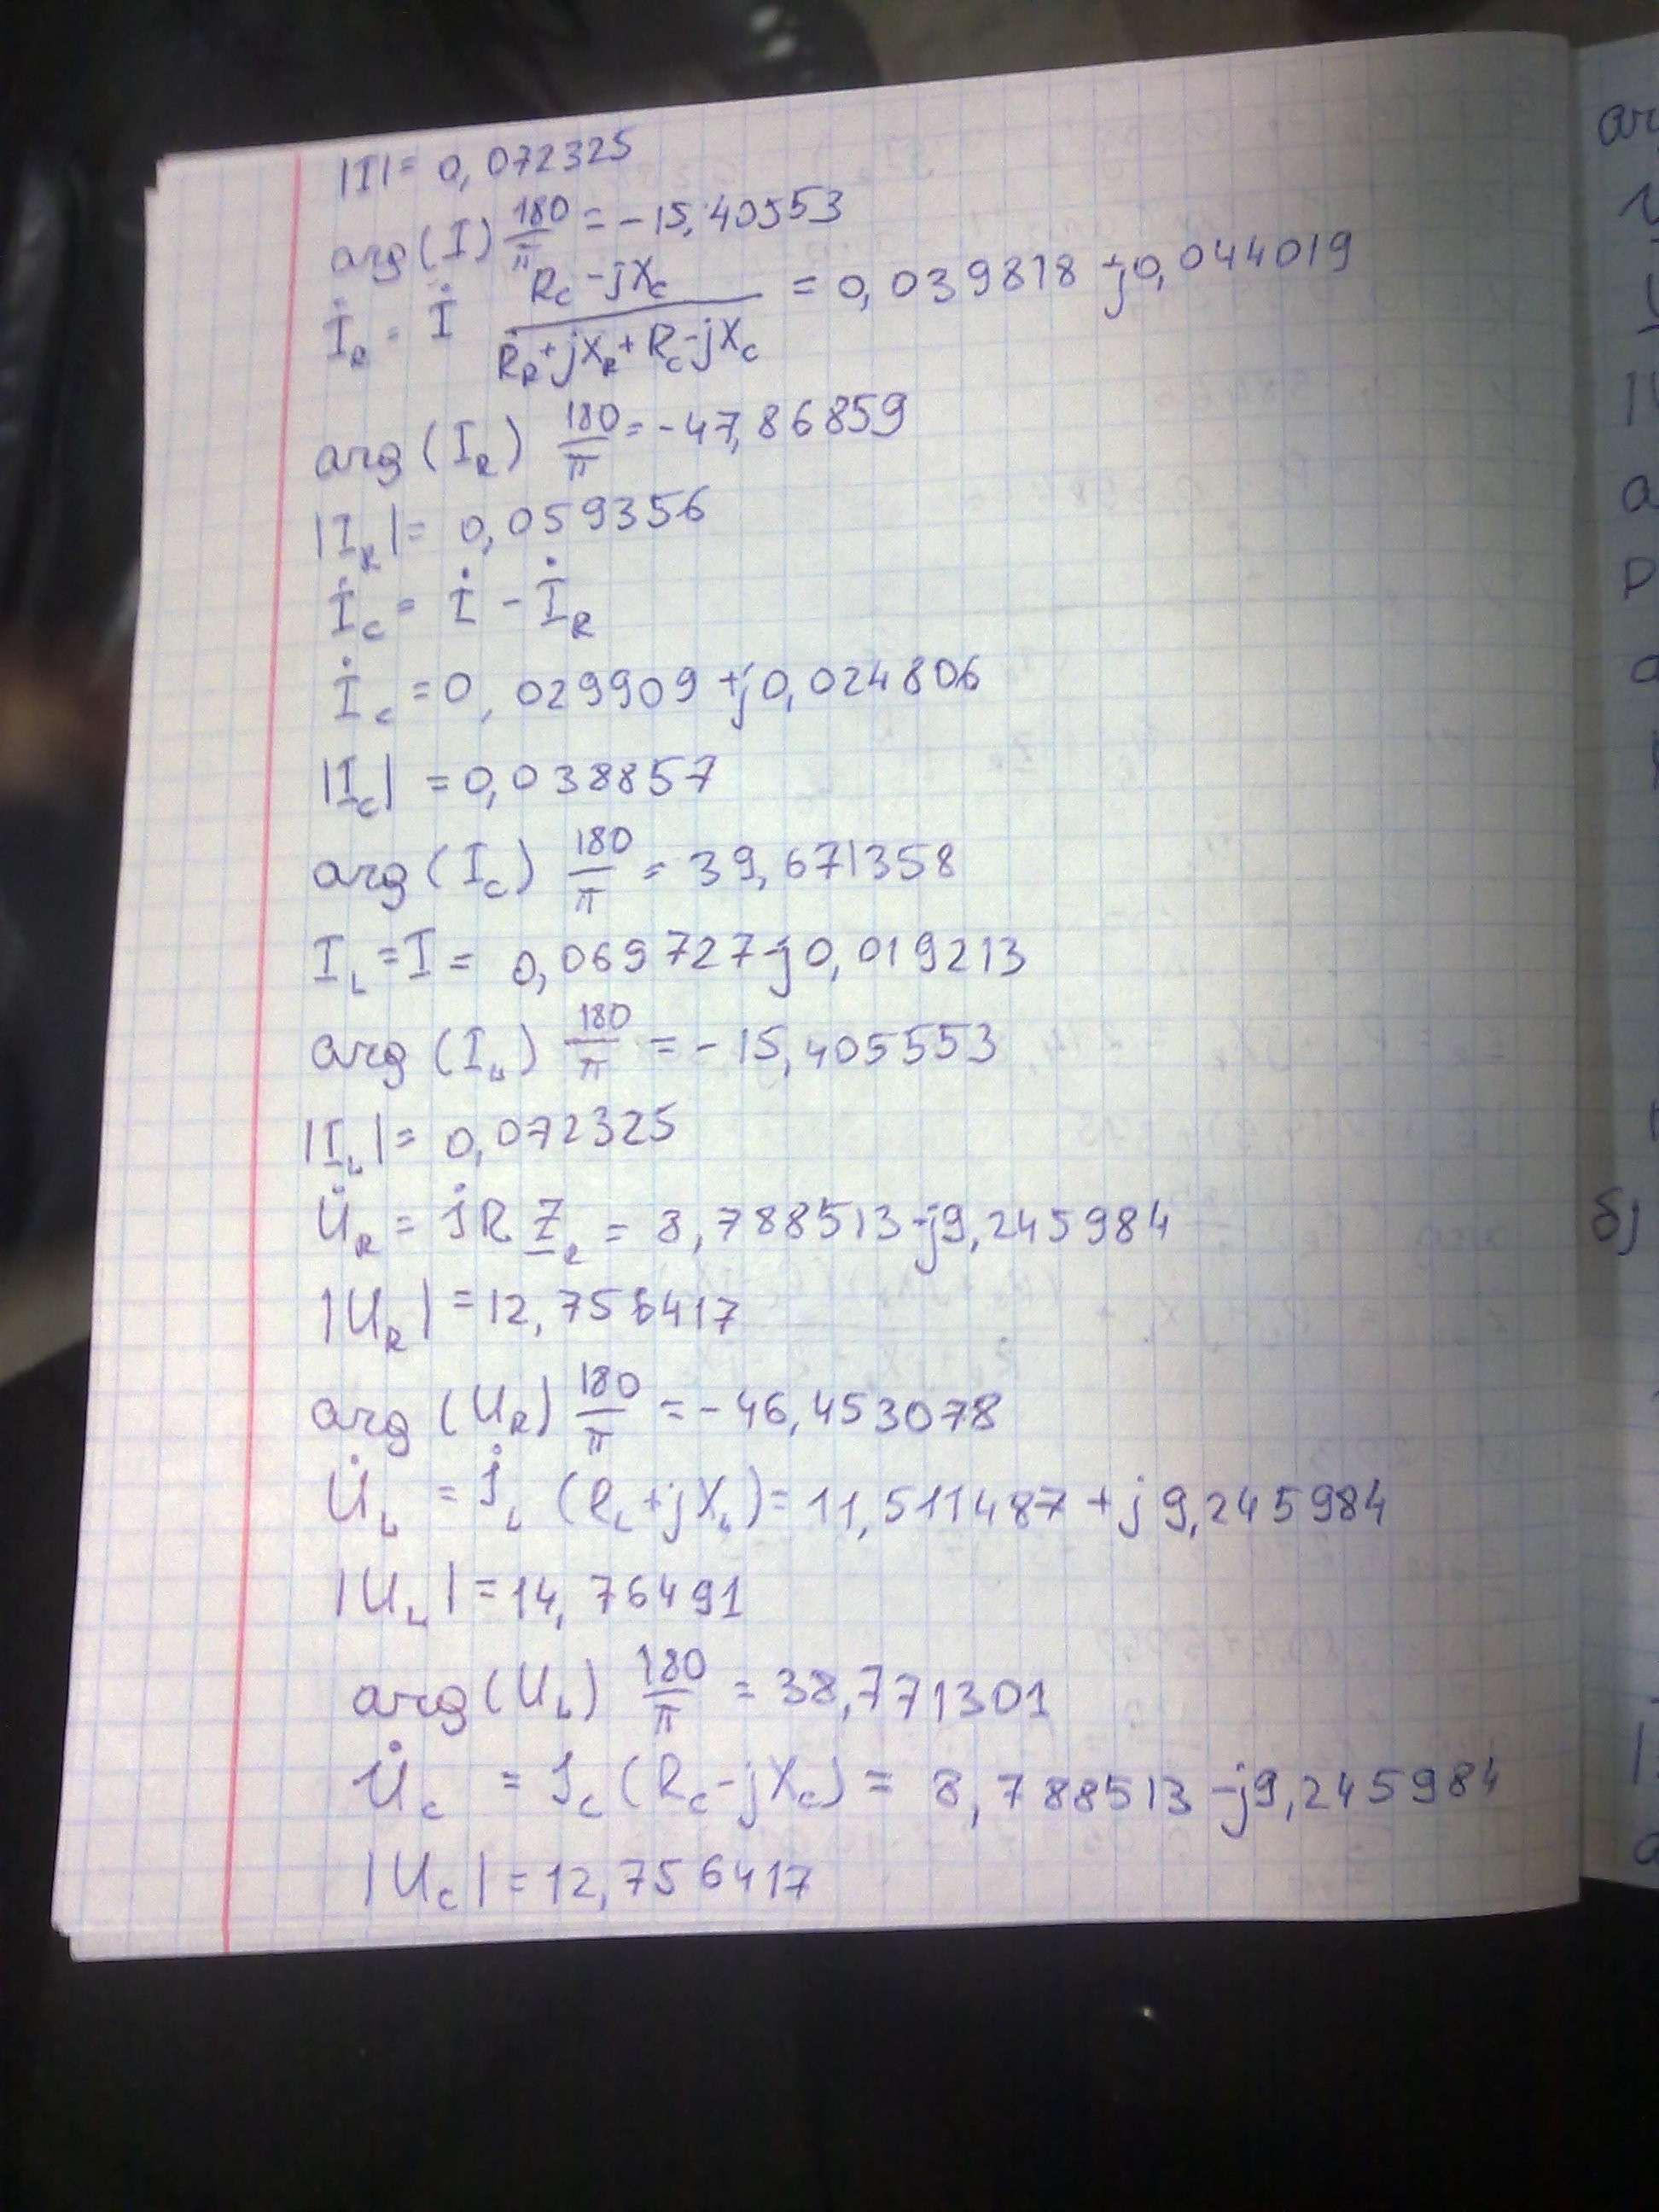 |I| = 0,072325
arg(I) 180/π = -15,40553
İ_R = İ (R_C - jX_C)/(R_R + jX_R + R_C - jX_C) = 0,039818 + j0,044019
arg(I_R) 180/π = -47,86859
|I_R| = 0,059356
İ_C = İ - İ_R
İ_C = 0,029909 + j0,024806
|I_C| = 0,038857
arg(I_C) 180/π = 39,671358
I_L = I = 0,069727 - j0,019213
arg(I_L) 180/π = -15,405553
|I_L| = 0,072325
U̇_R = İR Z_R = 8,788513 - j9,245984
|U_R| = 12,756417
arg(U_R) 180/π = -46,453078
U̇_L = İ_L (R_L + jX_L) = 11,511487 + j9,245984
|U_L| = 14,76491
arg(U_L) 180/π = 38,771301
U̇_C = I_C (R_C - jX_C) = 8,788513 - j9,245984
|U_C| = 12,756417
б)